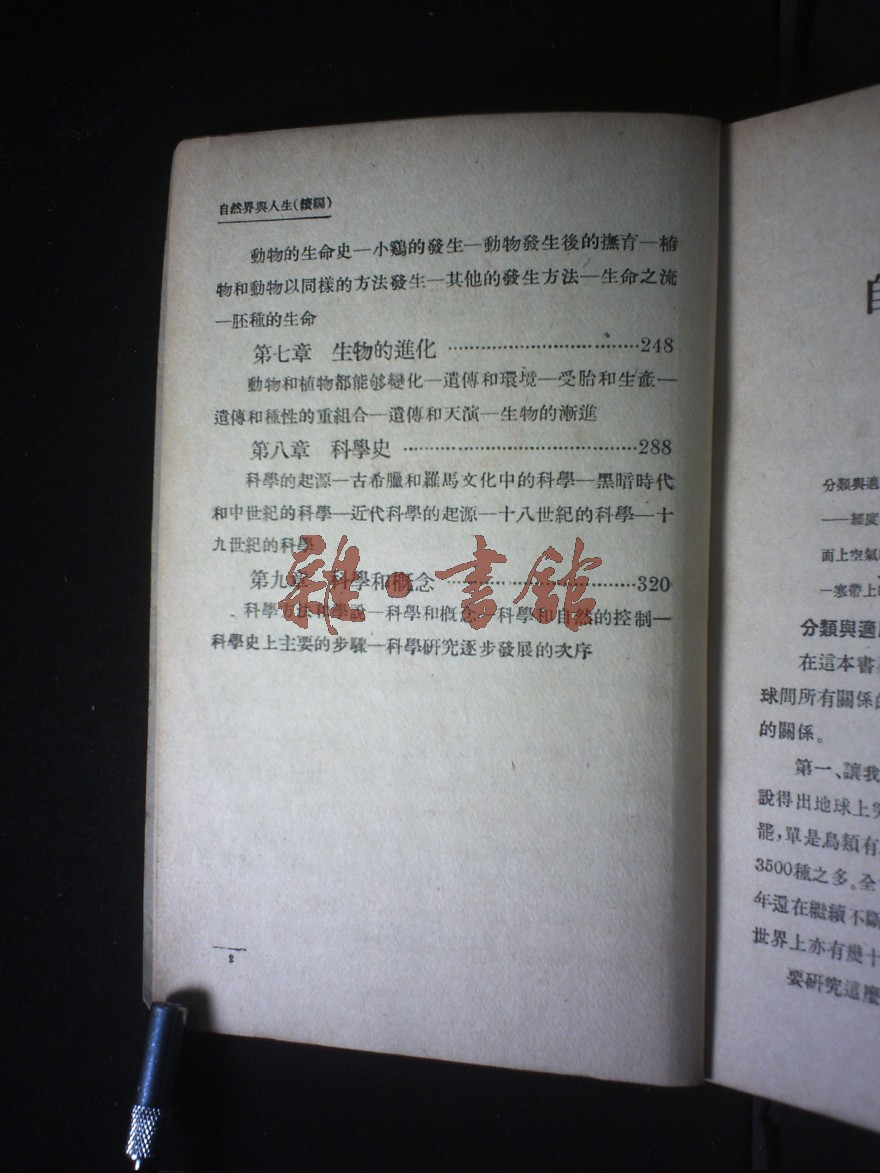 自然界與人生(續編)
動物的生命史—小鷄的發生—動物發生後的撫育—植
物和動物以同樣的方法發生—其他的發生方法—生命之流
—胚種的生命
第七章 生物的進化 ……………………………248
動物和植物都能够變化—遺傳和環境—受胎和生產—
遺傳和種性的重組合—遺傳和天演—生物的漸進
第八章 科學史 …………………………………288
科學的起源—古希臘和羅馬文化中的科學—黑暗時代
和中世紀的科學—近代科學的起源—十八世紀的科學—十
九世紀的科學
第九章 科學和概念 ……………………………320
科學方法和學說—科學和概念—科學和自然的控制—
科學史上主要的步驟—科學研究逐步發展的次序
2
雜·書館
自
分類與適
——經度
面上空氣
—寒帶上
分類與適
在這本書
球間所有關係的
的關係。
第一、讓我
說得出地球上
罷，單是鳥類有
3500種之多。全
年還在繼續不斷
世界上亦有幾十
要研究這麼